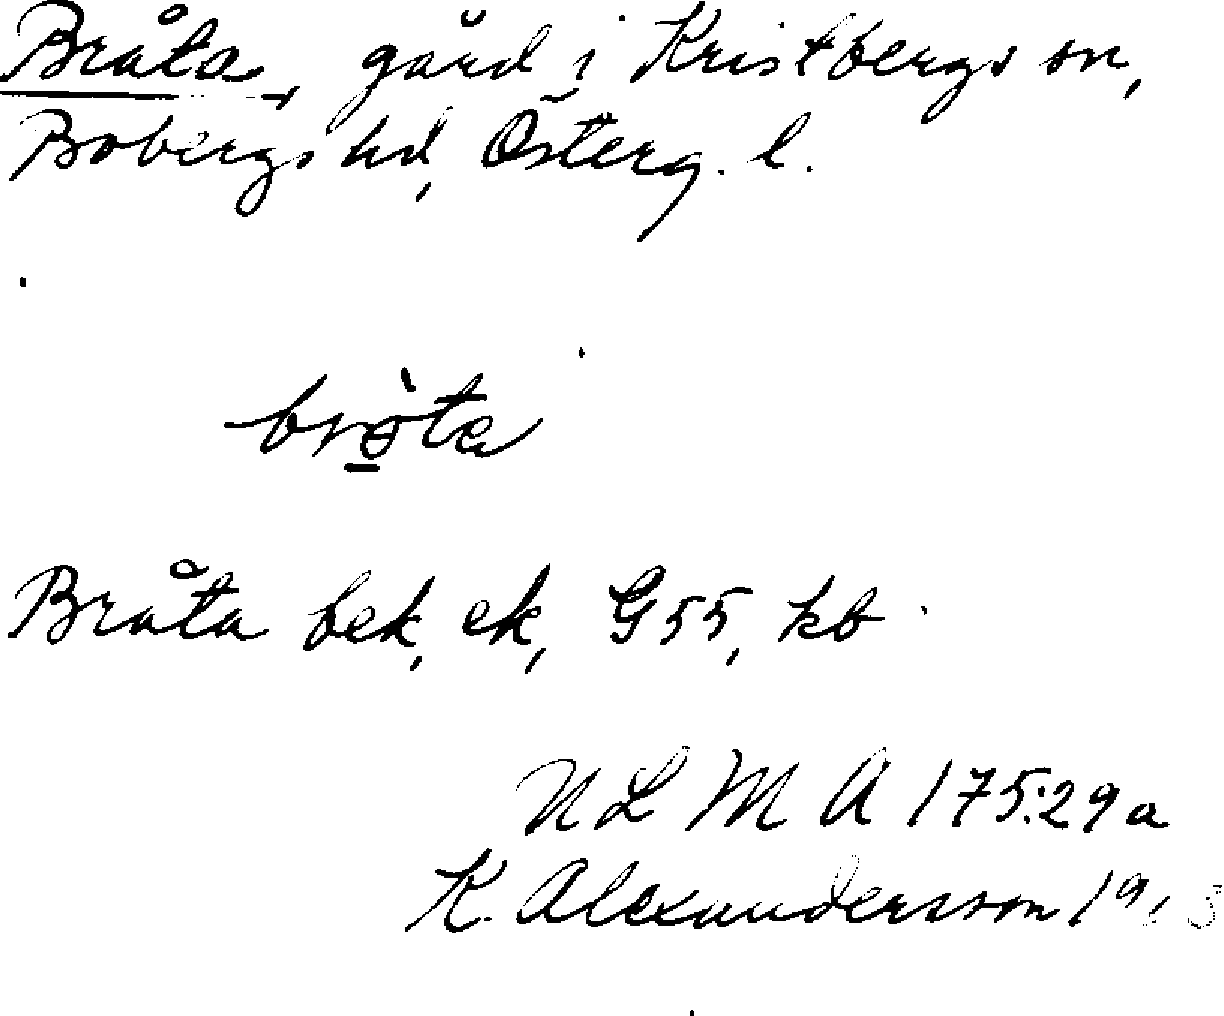 Bråta, gård i Kristbergs sn,
Bobergs hd, Österg. l.
bròta
Bråta bek, ek, G55, kb
NLM A 175:29a
K. Alexandersson